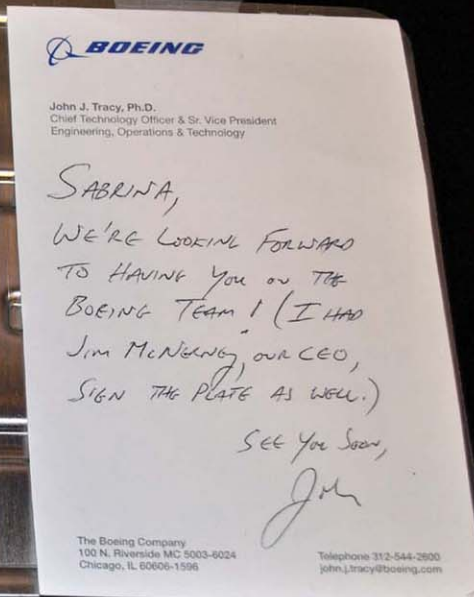 BOEING
John J. Tracy, Ph.D.
Chief Technology Officer & Sr. Vice President
Engineering, Operations & Technology
SABRINA,
WE'RE LOOKING FORWARD
TO HAVING YOU ON THE
BOEING TEAM! (I HAD
JIM MCNERNEY, OUR CEO,
SIGN THE PLATE AS WELL.)
SEE YOU SOON,
John
The Boeing Company
100 N. Riverside MC 5003-6024
Chicago, IL 60606-1596
Telephone 312-544-2800
john.j.tracy@boeing.com